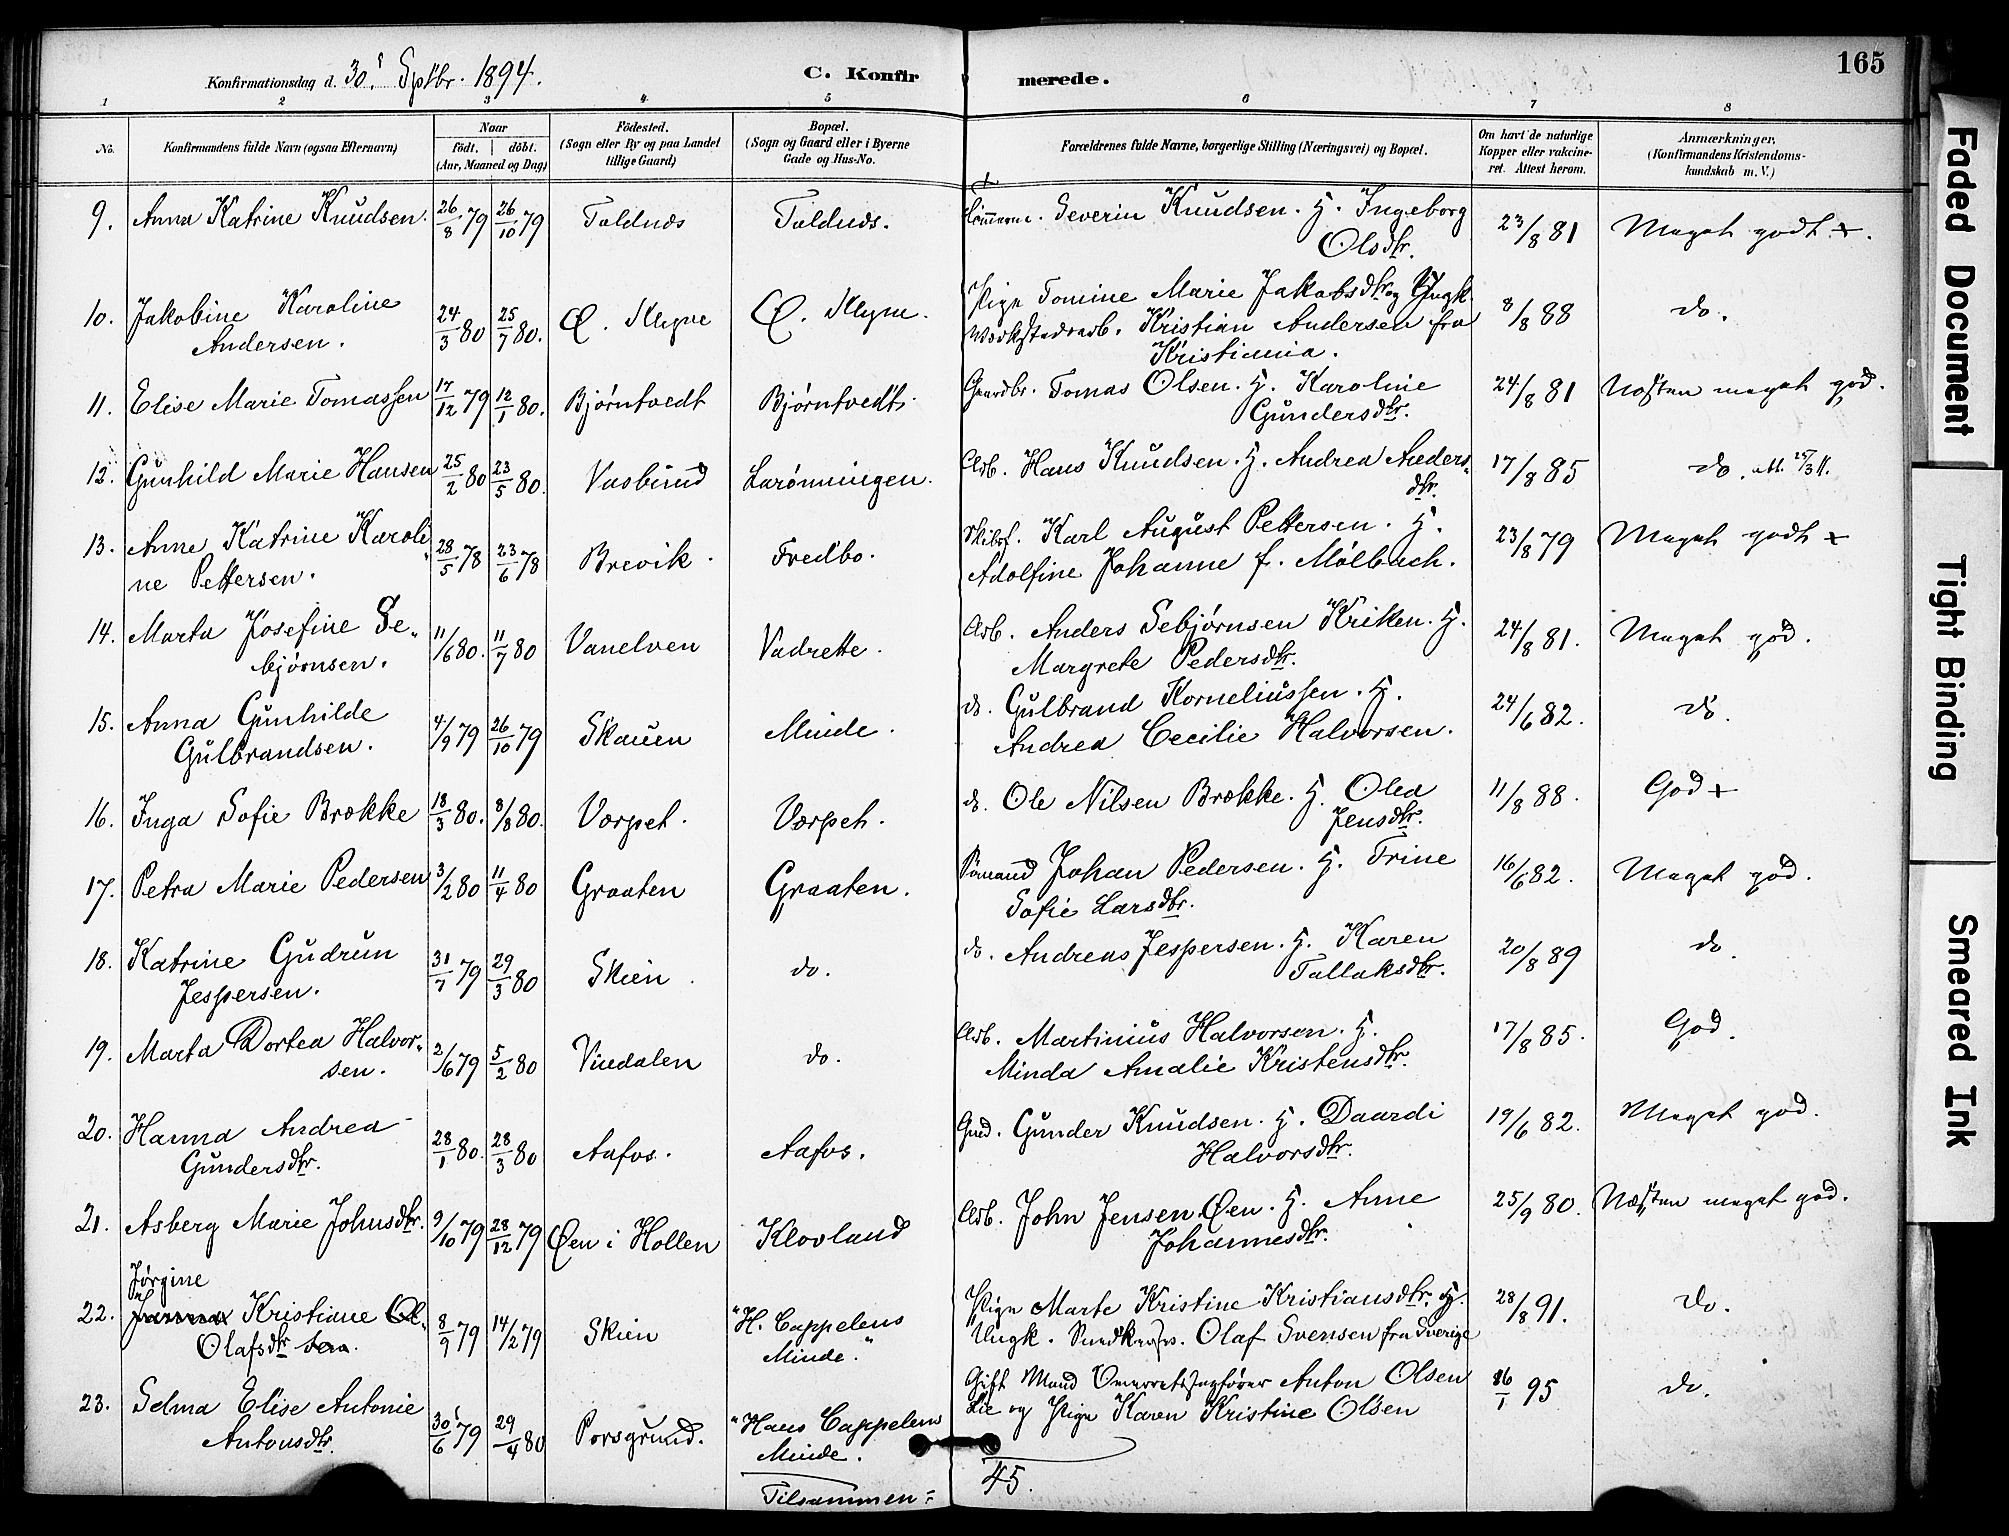 165
Konfirmationsdag d. 30. Sptbr. 1894.
C. Konfirmerede.
1 2 3 4 5 6 7 8
No.
Konfirmandens fulde Navn (ogsaa Efternavn)
Naar
født. | døbt.
(Aar, Maaned og Dag)
Fødested.
(Sogn eller By og paa Landet
tillige Gaard)
Bopæl.
(Sogn og Gaard eller i Byerne
Gade og Hus-No.
Forældrenes fulde Navne, borgerlige Stilling (Næringsvei) og Bopæl.
Om havt de naturlige
Kopper eller vakcine-
ret. Attest herom.
Anmærkninger.
(Konfirmandens Kristendoms-
kundskab m. V.)
9. Anna Katrine Knudsen. 26/8 79 26/10 79 Foldnes Foldnes. Severin Knudsen. H. Ingeborg 23/8 81 Meget godt +.
Olsdtr.
10. Jakobine Karoline 24/3 80 25/7 80. Ø. Klyve Ø. Klyve. Pige Tomine Marie Jakobsdtr. og Ungk. 8/8 88 do.
Andersen. Værkstedsarb. Kristian Andersen fra
Kristiania.
11. Elise Marie Tomassen 17/12 79 12/1 80. Bjørntvedt Bjørntvedt. Gaardbr. Tomas Olsen. H. Karoline 24/8 81 Næsten meget god.
Gundersdtr.
12. Gunhild Marie Hansen 25/2 80 23/5 80. Vasbund Larønningen. Arb. Hans Knudsen. H. Andrea Anders- 17/8 85 do.
dtr.
13. Anne Katrine Karoli- 28/5 78 23/6 78 Brevik. Fredbo. Skibsf. Karl August Pettersen. H. 23/8 79 Meget godt +
ne Pettersen. Adolfine Johanne f. Mølbach.
14. Marta Josefine Se- 11/6 80. 11/7 80 Vanelven Vadrette. Arb. Anders Sebjørnsen Kriken. H. 24/8 81. Meget god.
bjørnsen. Margrete Pedersdtr.
15. Anna Gunhilde 4/9 79 26/10 79 Skauen Minde. do. Gulbrand Korneliussen. H. 24/6 82. do.
Gulbrandsen. Andrea Cecilie Halvorsen.
16. Inga Sofie Brække 18/3 80. 8/8 80. Vorpet. Vorpet. do. Ole Nilsen Brække. H. Olea 11/8 88. God +
Jensdtr.
17. Petra Marie Pedersen 3/2 80 11/4 80 Graaten Graaten. Sømand Johan Pedersen. H. Trine 16/6 82. Meget god.
Sofie Larsdtr.
18. Katrine Gudrun 31/7 79 29/3 80 Skien. do. do. Andreas Jespersen. H. Karen 20/8 89 do.
Jespersen. Tallaksdtr.
19. Marta Dortea Halvor- 2/6 79 5/2 80 Viedalen do. Arb. Martinius Halvorsen. H. 17/8 85. God.
sen. Minda Amalie Kristensdtr.
20. Hanna Andrea 28/1 80. 28/3 80 Aafos. Aafos. Gmd. Gunder Knudsen. H. Daardi 19/6 82. Meget god.
Gundersdtr. Halvorsdtr.
21. Asberg Marie Johnsdtr. 9/10 79 28/12 79 Øen i Hollen Klovland Arb. John Jensen Øen. H. Anne 25/9 80. Næsten meget god.
Johannesdtr.
Jørgine
22. Kristiane Ol- 8/9 79 14/2 79 Skien "H. Cappelens Pige Marte Kristine Kristiansdtr. og 28/8 91. do.
Olafsdtr sen. Minde." Ungk. Olaf Svensen fra Sverige
23. Selma Elise Antonie 30/6 79 29/4 80 Porsgrund. "Hans Cappelens Gift Mand Anton Olsen 16/1 95 do.
Antonsdtr. Minde. Lie og Pige Karen Kristine Olsen
Tilsammen = 45.
Faded Document
Tight Binding
Smeared Ink